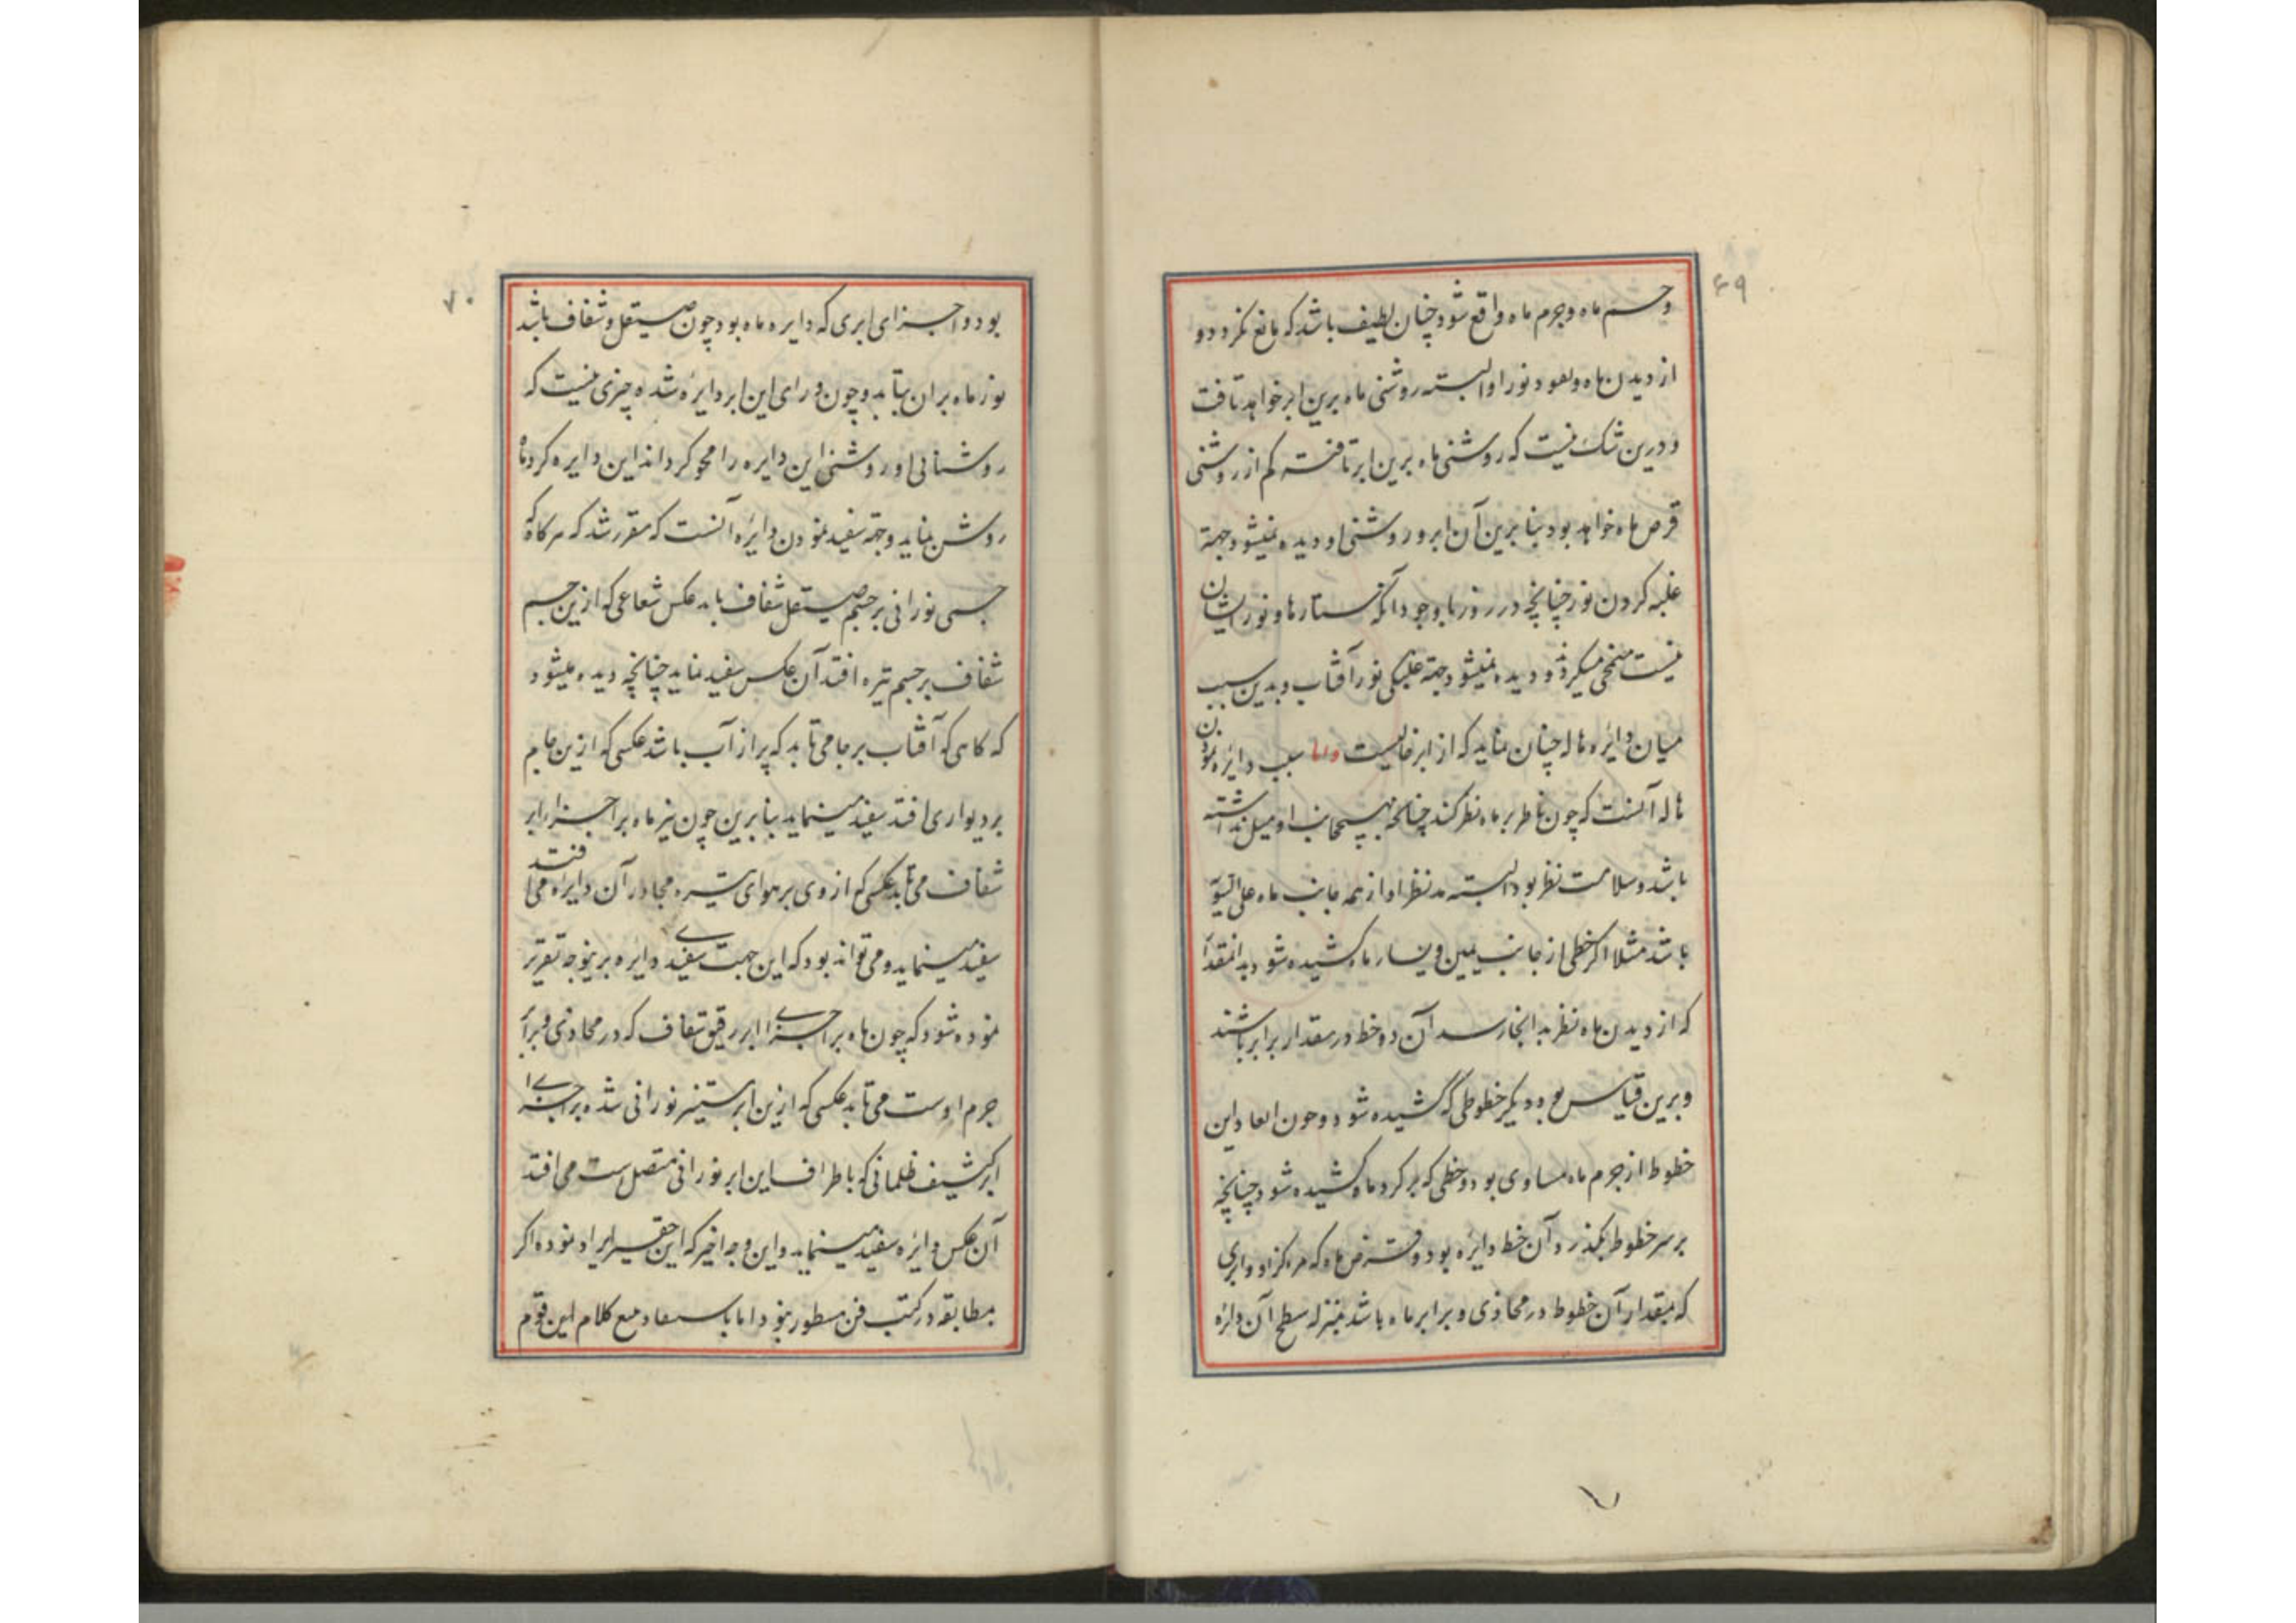 ۶۹
و جسم ماه و جرم ماه واقع شود چنان لطیف باشد که مانع نکردد و
از دیدن ماه و نور او البته روشنی ماه برین ابر خواهد تافت
و درین شک نیست که روشنی ماه برین ابر تافته کم از روشنی
قرص ماه خواهد بود بنابرین آن ابر و روشنی او دیده نمیشود جهة
غلبه کردن نور چنانچه در روز با وجود آنکه ستارها و نور ایشان
نیست منمحی میکردد و دیده نمیشود جهة غلبکی نور آفتاب و بدین سبب
میان دایره هاله چنان نماید که از ابر خالیست و اما سبب دایره نمودن
هاله آنست که چون ناظر بر ماه نظر کند چنانچه بهیچ جانب او میل نداشته
باشد و سلامت نظر بود البته مد نظر او از همه جانب ماه علی السویه
باشد مثلا اکر خطی از جانب یمین و یسار ماه کشیده شود بدانمقدار
که از دیدن ماه نظر بدانجا رسد آن دو خط در مقدار برابر باشند
و برین قیاس بود دیکر خطوطی که کشیده شود و چون ابعاد این
خطوط از جرم ماه مساوی بود و خطی که بر کرد ماه کشیده شود چنانچه
بر سر خطوط بکذرد آن خط دایره بود و قرص ماه که مرکز او و ابری
که بمقدار آن خطوط در محاذی و برابر ماه باشد بمنزله سطح آن دایره
۷۰
بود و اجزای ابری که دایره ماه بود چون صیقل و شفاف باشد
نور ماه بران بتابد و چون ورای این ابر دایره شده چیزی نیست که
روشنائی او روشنی این دایره را محو کرداند این دایره کرد ماه
روشن نماید و جهة سفید نمودن دایره آنست که مقرر شد که هر کاه که
جسمی نورانی بر جسم صیقل شفاف تابد عکس شعاعی که ازین جسم
شفاف بر جسم تیره افتد آن عکس سفید نماید چنانچه دیده میشود
که کاهی که آفتاب بر جامی تابد که پر از آب باشد عکسی که ازین جام
بر دیواری افتد سفید مینماید بنابرین چون نیز ماه بر اجزا ابر
شفاف می تابد عکسی که از وی بر هوای تیره مجاور آن دایره می افتد
سفید مینماید و می تواند بود که این جهت سفیدی دایره برینوجه تقریر
نموده شود که چون ماه بر اجزای ابر رقیق شفاف که در محاذی و برابر
جرم اوست می تابد عکسی که ازین ابر مستنیر نورانی شده بر اجزای
ابر کثیف ظلمانی که باطراف این ابر نورانی متصل ست می افتد
آن عکس دایره سفید مینماید و این وجه اخیر که این حقیر ایراد نموده اکر
بمطابقه در کتب فن مسطور نبود اما مع کلام این قوم